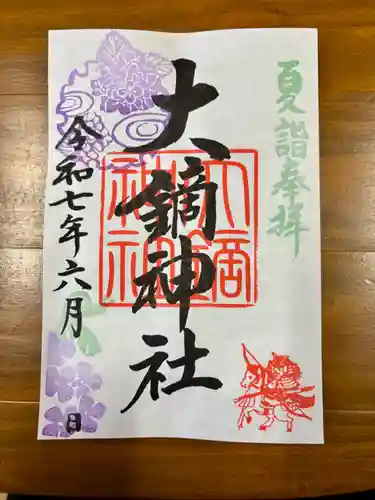 夏詣奉拝
大鏑神社
大鏑神社
令和七年六月
日